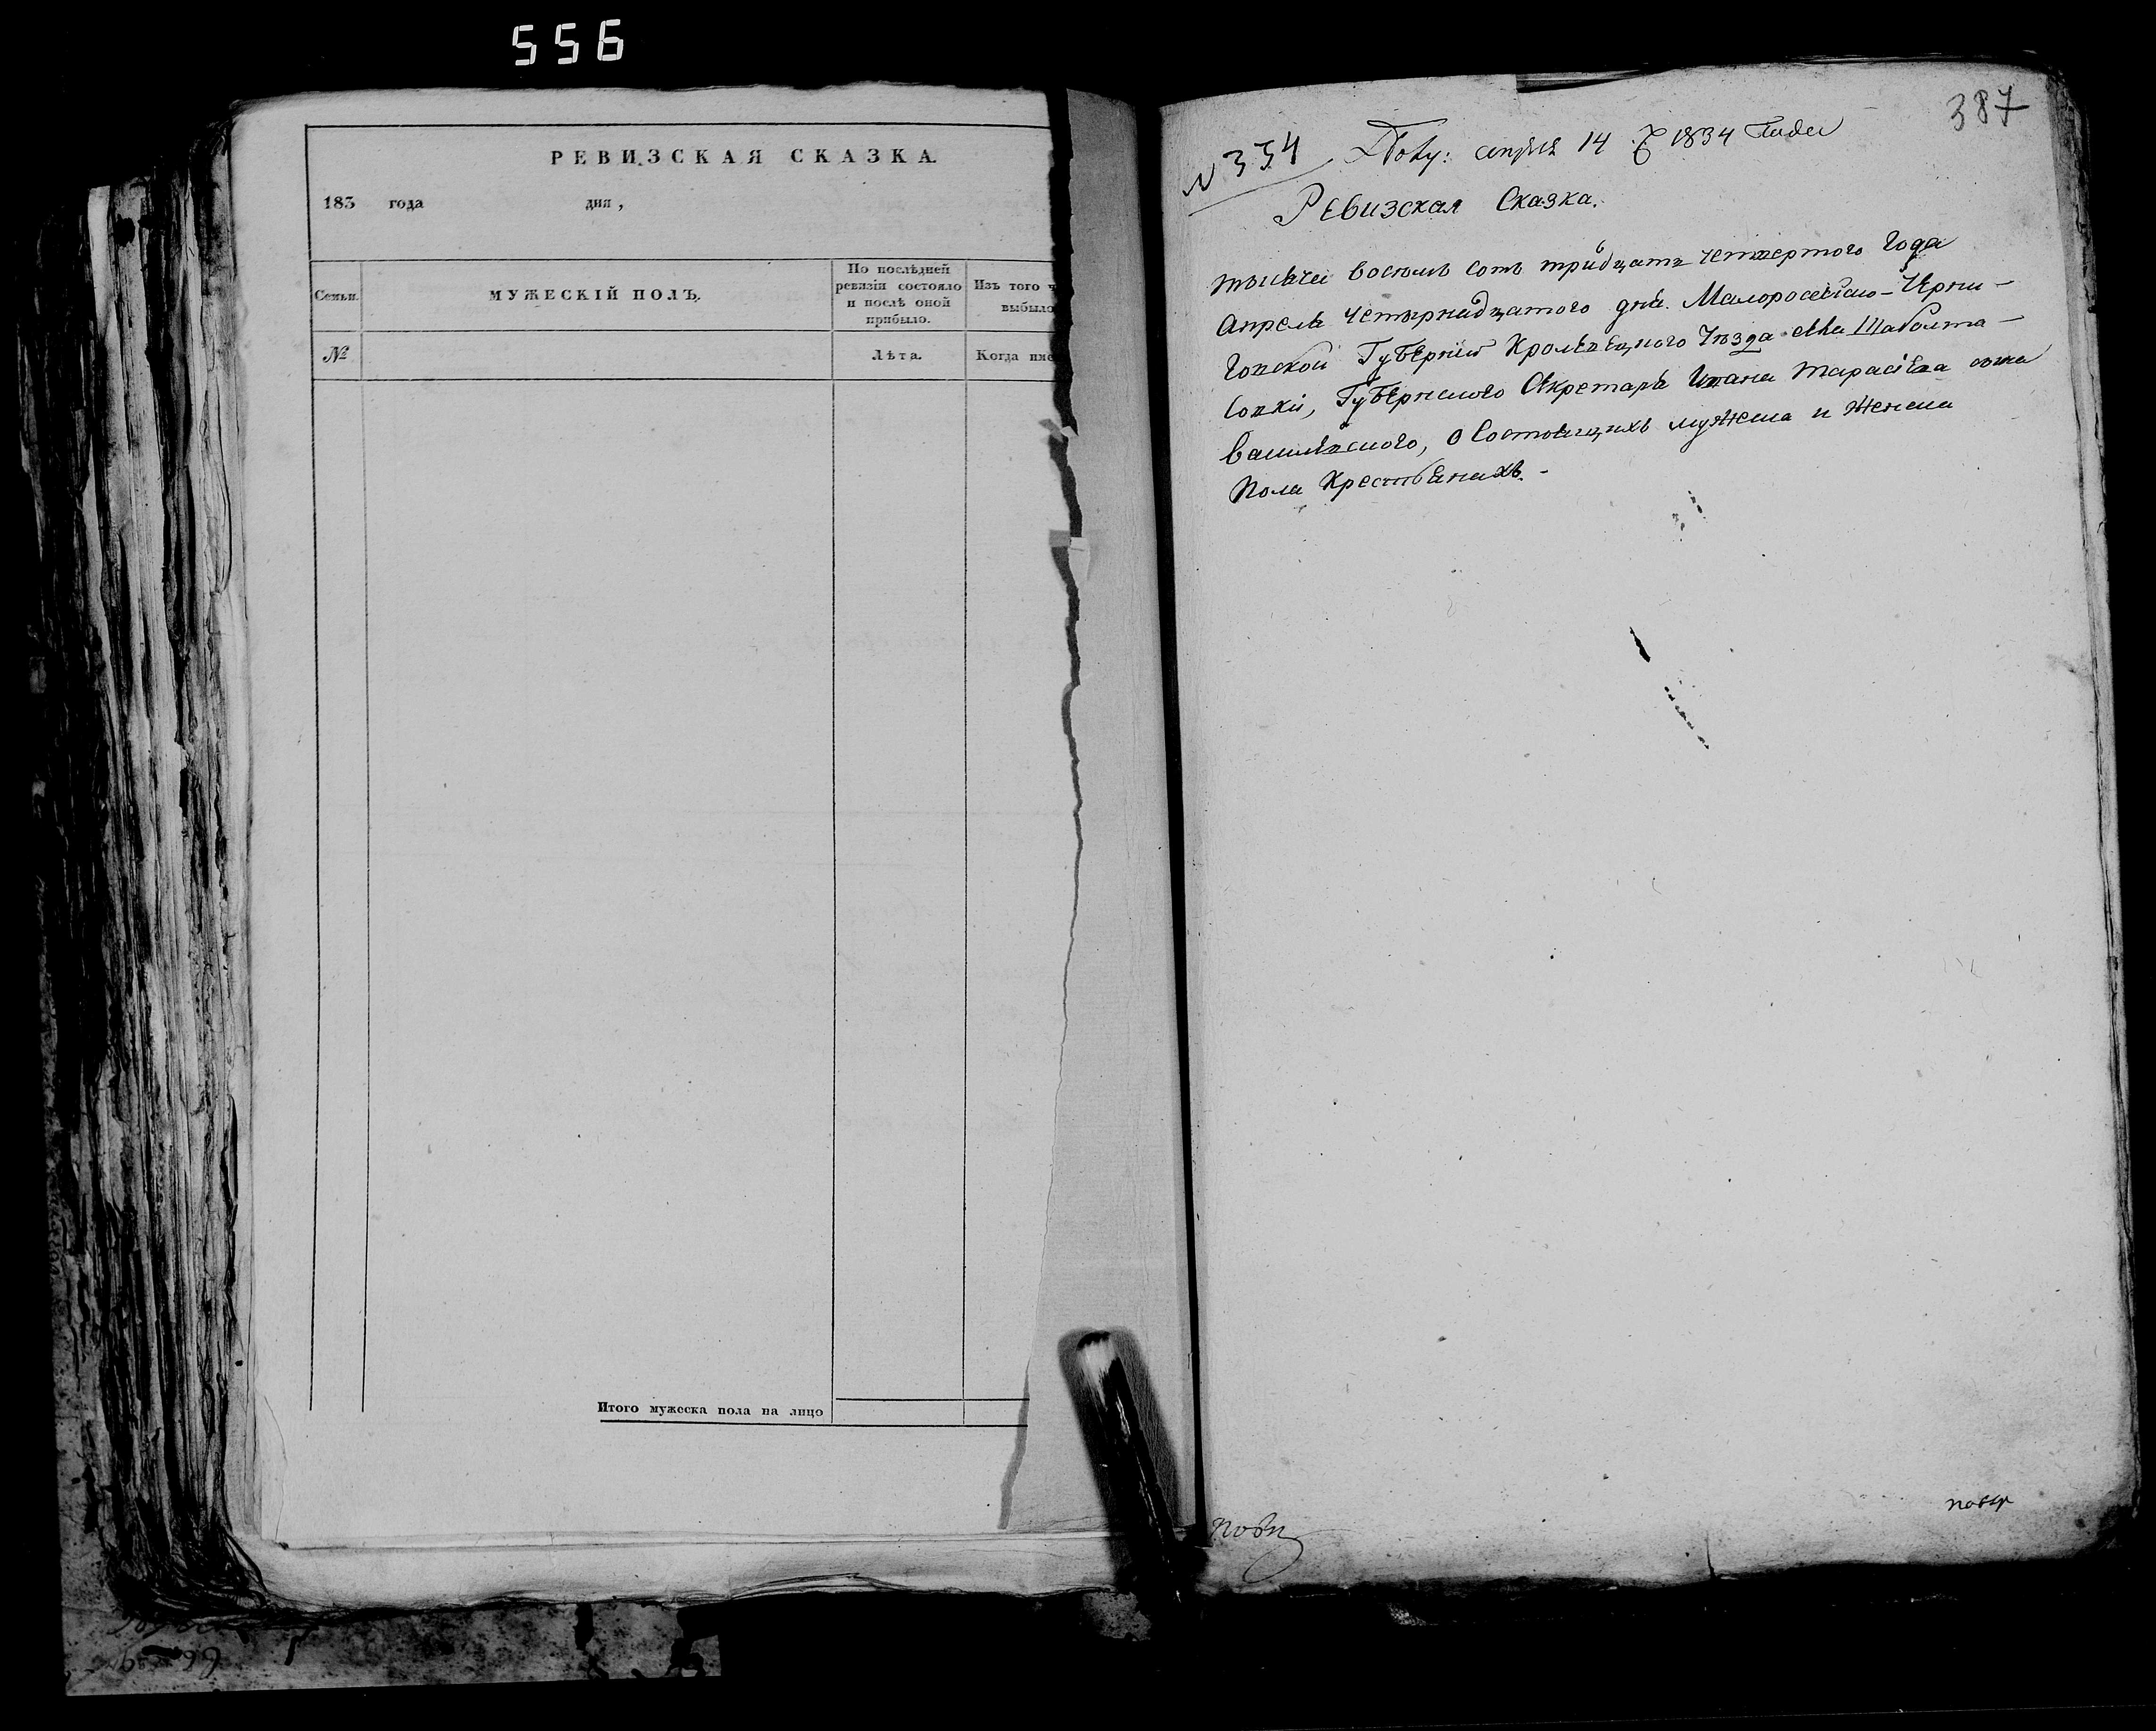 556
РЕВИЗСКАЯ СКАЗКА.
183 года дня ,
Семьи.
МУЖЕСКІЙ ПОЛЪ.
По послѣдней
ревизіи состояло
и послѣ оной
прибыло.
Изъ того ч
выбыло
№
Лѣта.
Когда име
Итого мужеска пола на лицо
387
N 334 апреля 14 1834 Года
Ревизская Сказка.
тысяча восемь сотъ тридцать четвертого Года
апреля четырнадцатого дня. Малоросейско-Черни-
говской Губерніи Кролевецкого уѣзда
Губернского Секретаря Ивана Тарасіева сына
о состоящихъ мужеска и женска
пола Крестьянахъ.-